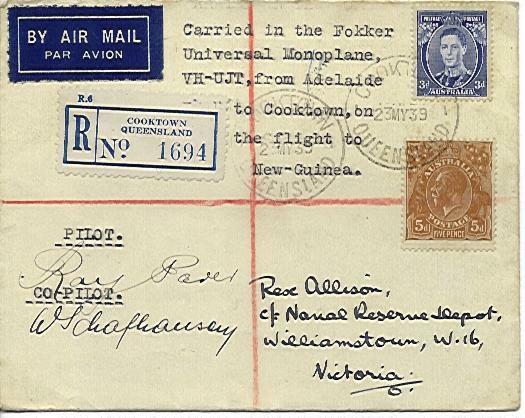 BY AIR MAIL
PAR AVION
Carried in the Fokker
Universal Monoplane,
VH-UJT, from Adelaide
to Cooktown, on
the flight to
New-Guinea.
POSTAGE POSTAGE
3d 3d
AUSTRALIA
23MY39
QUEENSLAND
R.6
R
COOKTOWN
QUEENSLAND
No 1694
23MY39
QUEENSLAND
AUSTRALIA
5d POSTAGE 5d
FIVE PENCE
PILOT.
Ray
CO-PILOT.
Rex Allison,
c/o Naval Reserve Depot,
Williamstown, W.16,
Victoria.